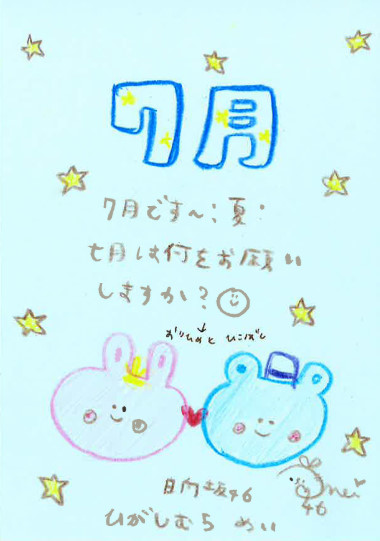 7月
7月です〜:夏:
七月は何をお願い
しますか?
おりひめと ひこぼし
日向坂46
ひがしむら めい
mei
46